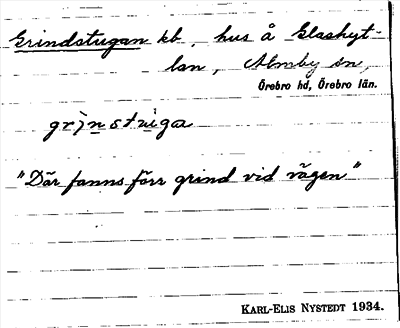 Grindstugan kb, hus å Glashyt-
tan, Almby sn,
Örebro hd, Örebro län.
"Där fanns förr grind vid vägen"
KARL-ELIS NYSTEDT 1934.